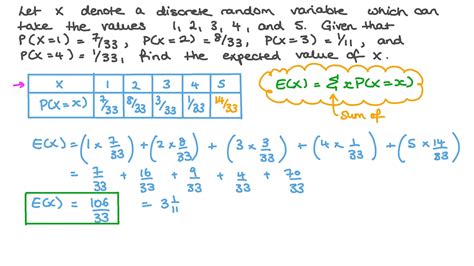 Let x denote a discrete random variable which can
take the values 1, 2, 3, 4, and 5. Given that
P(X=1) = 7/33, P(X=2) = 8/33, P(X=3) = 1/11, and
P(X=4) = 1/33, find the expected value of x.
→ X 1 2 3 4 5
P(X=x) 7/33 8/33 3/33 1/33 14/33
E(X) = Σ x P(X=x)
sum of
E(X) = (1 × 7/33) + (2 × 8/33) + (3 × 3/33) + (4 × 1/33) + (5 × 14/33)
= 7/33 + 16/33 + 9/33 + 4/33 + 70/33
E(X) = 106/33 = 3 1/11